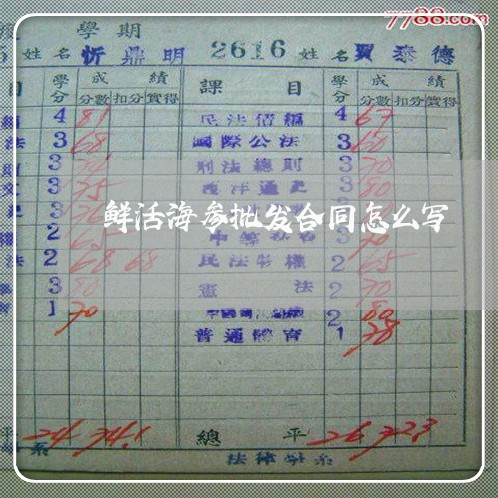 7788.com
學期
姓名 忻鼎明 2616 姓名 賈泰德
目 學分 成績 課目 學分 成績
分數 扣分 實得 分數 扣分 實得
4 81 民法債編 4 67
法 3 68 國際公法 3 60
3 刑法總則 3 70
3 75 西洋通史 3 80
鲜活海参批发合同怎么写
2 3 70
法 2 68 68 民法物權 2 65
3 80 憲法 2 70
1 70 2 80
普通體育 1 78
平 24 74.1 總平 26 72.3
系 法律學系